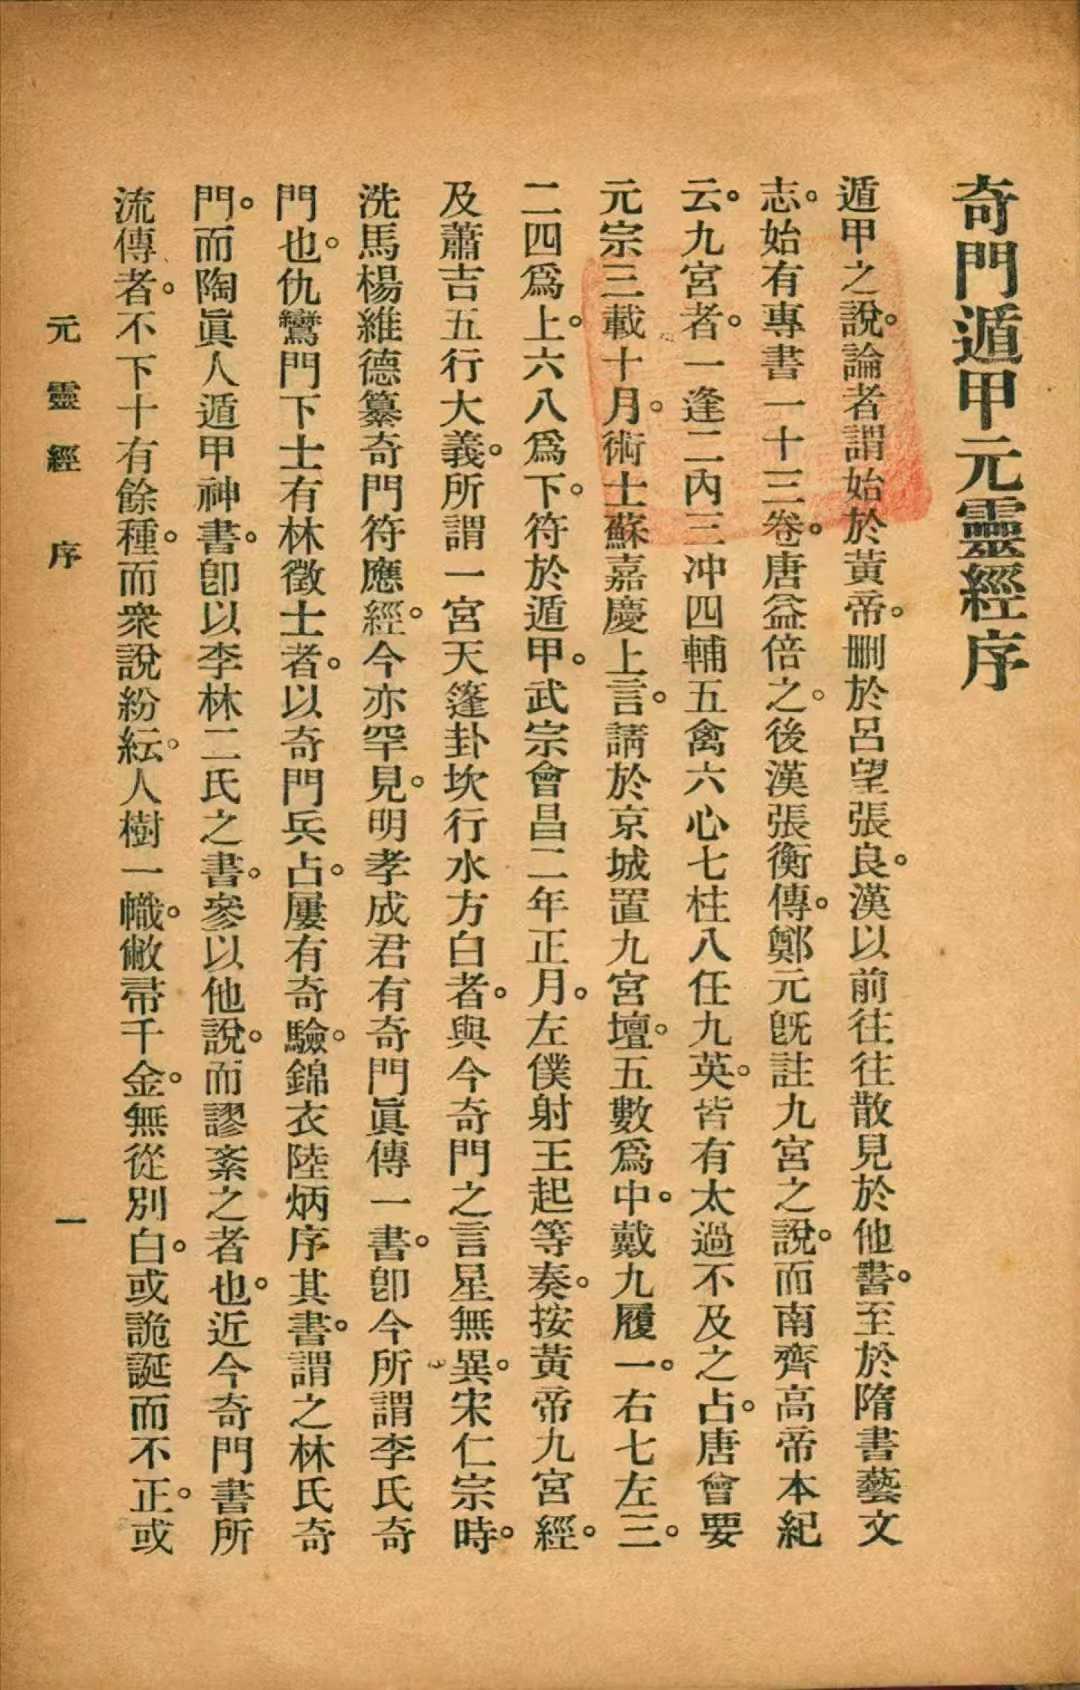 奇門遁甲元靈經序
遁甲之說。論者謂始於黃帝。刪於呂望張良。漢以前往往散見於他書。至於隋書藝文
志。始有專書一十三卷。唐益倍之。後漢張衡傳。鄭元旣註九宮之說。而南齊高帝本紀
云。九宮者。一逢二內三冲四輔五禽六心七柱八任九英。皆有太過不及之占。唐會要
元宗三載十月。術士蘇嘉慶上言。請於京城置九宮壇。五數爲中。戴九履一。右七左三。
二四爲上。六八爲下。符於遁甲。武宗會昌二年正月。左僕射王起等奏。按黃帝九宮經。
及蕭吉五行大義。所謂一宮天篷卦坎行水方白者。與今奇門之言星無異。宋仁宗時。
洗馬楊維德纂奇門符應經。今亦罕見。明孝成君有奇門眞傳一書。卽今所謂李氏奇
門也。仇鸞門下士有林徵士者。以奇門兵占。屢有奇驗。錦衣陸炳序其書。謂之林氏奇
門。而陶眞人遁甲神書。卽以李林二氏之書。參以他說。而謬紊之者也。近今奇門書所
流傳者。不下十有餘種。而衆說紛紜。人樹一幟。敝帚千金。無從別白。或詭誕而不正。或
元靈經 序 一